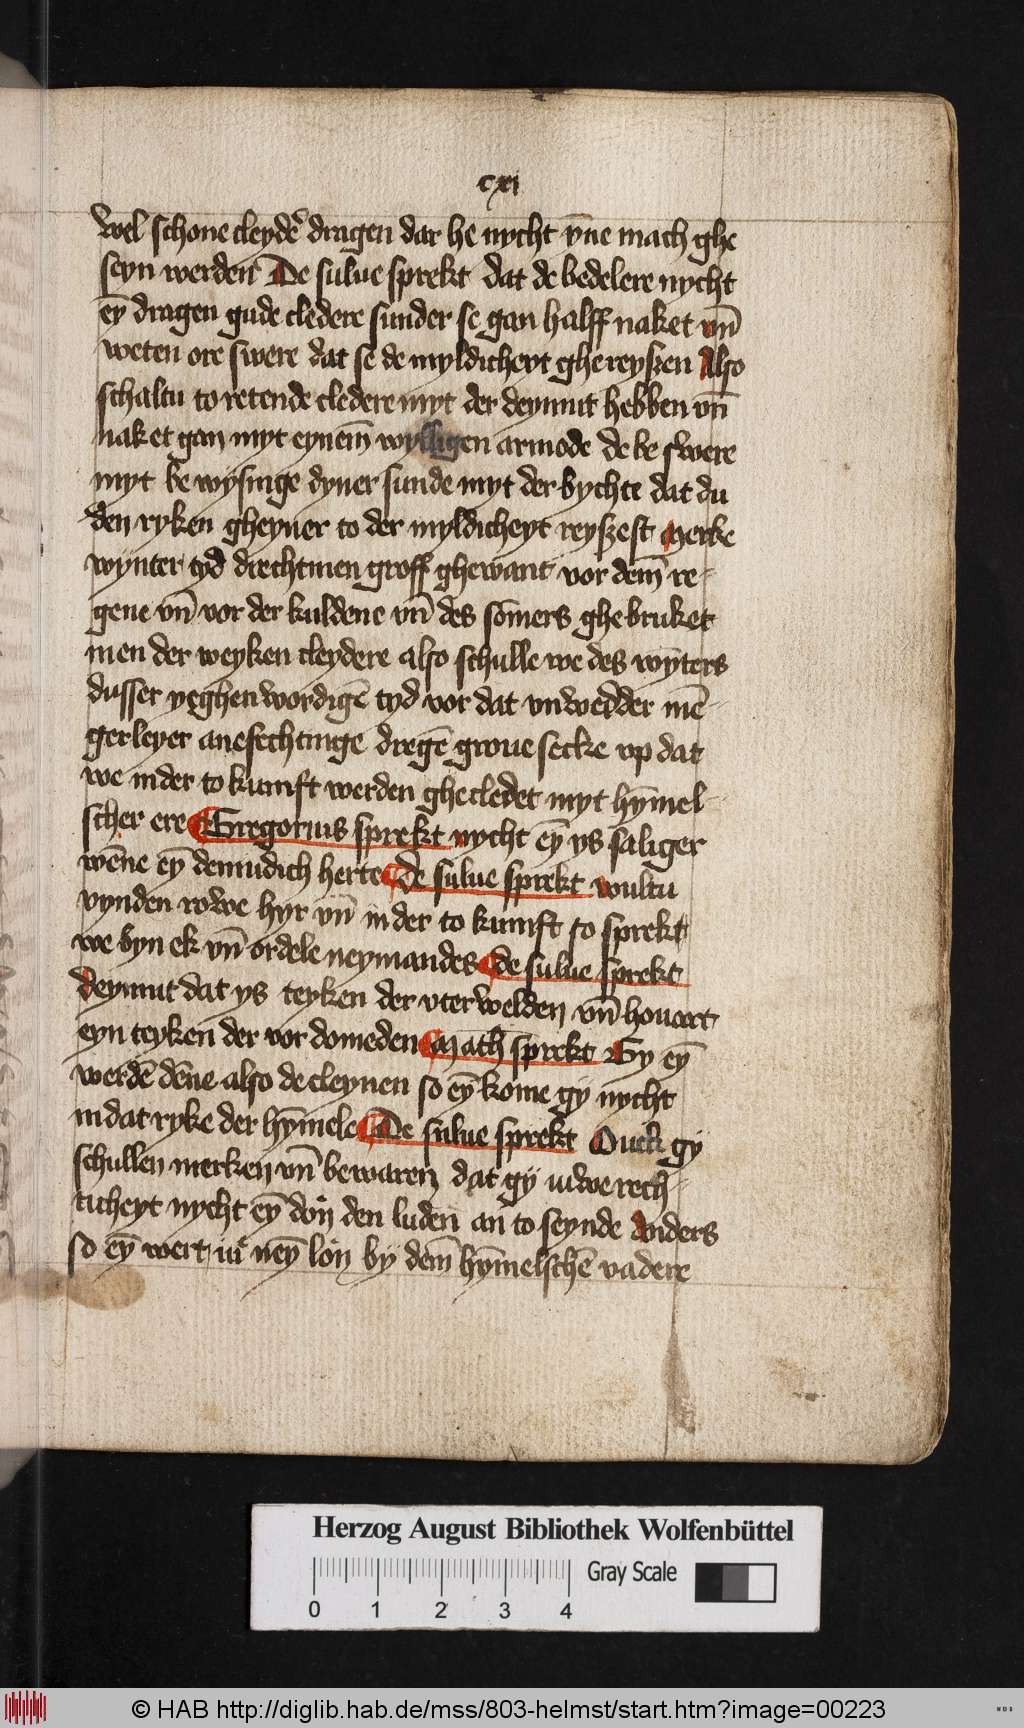 cxi
wel schone cleydẽ dragen dar he nycht ỹne mach ghe
seyn werden De sulue sprekt dat de bedelere nycht
eȳ dragen gude cledere sunder se gan halff naket vn̄
weten ore swere dat se de myldicheyt ghereysen Also
schaltu to retende cledere myt der deymut hebben vn̄
naket gan myt eynem̄ wylligen armode de be swere
myt be wysinge dyner sunde myt der bychte dat du
den ryken gheyner to der myldicheyt reyszest Merke
wynter tyd drechtmen groff ghewant vor dem̄ re-
gene vn̄ vor der kuldene vn̄ des som̄ers ghe bruket
men der weyken cleydere also schulle we des wȳters
dusser yeghen wordigē tyd vor dat vnwedder mē-
gerleyer anefechtinge dregē groue secke vp dat
we in der to kumft werden ghecledet myt hȳmel-
scher ere Gregorius sprekt nycht eȳ ys saliger
wēne eȳ demudich herte de sulue sprekt wultu
vynden rowe hyr vn̄ in der to kumft so sprekt
we byn ek vn̄ ordele neymandes de sulue sprekt
deymut dat ys teyken der vterwelden vn̄ houart
eyn teyken der vor domeden Math̄ sprekt Gy eȳ
werdē dēne also de cleynen so eȳ kome gy nycht
in dat ryke der hȳmele De sulue sprekt Ouck gy
schullen merken vn̄ bewaren dat gy iuwe rech-
ticheyt nycht eȳ don den luden an to seynde Anders
so eȳ wert iu̇ neȳ lon by dem̄ hȳmelschē vadere
Herzog August Bibliothek Wolfenbüttel
Gray Scale
0 1 2 3 4
© HAB http://diglib.hab.de/mss/803-helmst/start.htm?image=00223